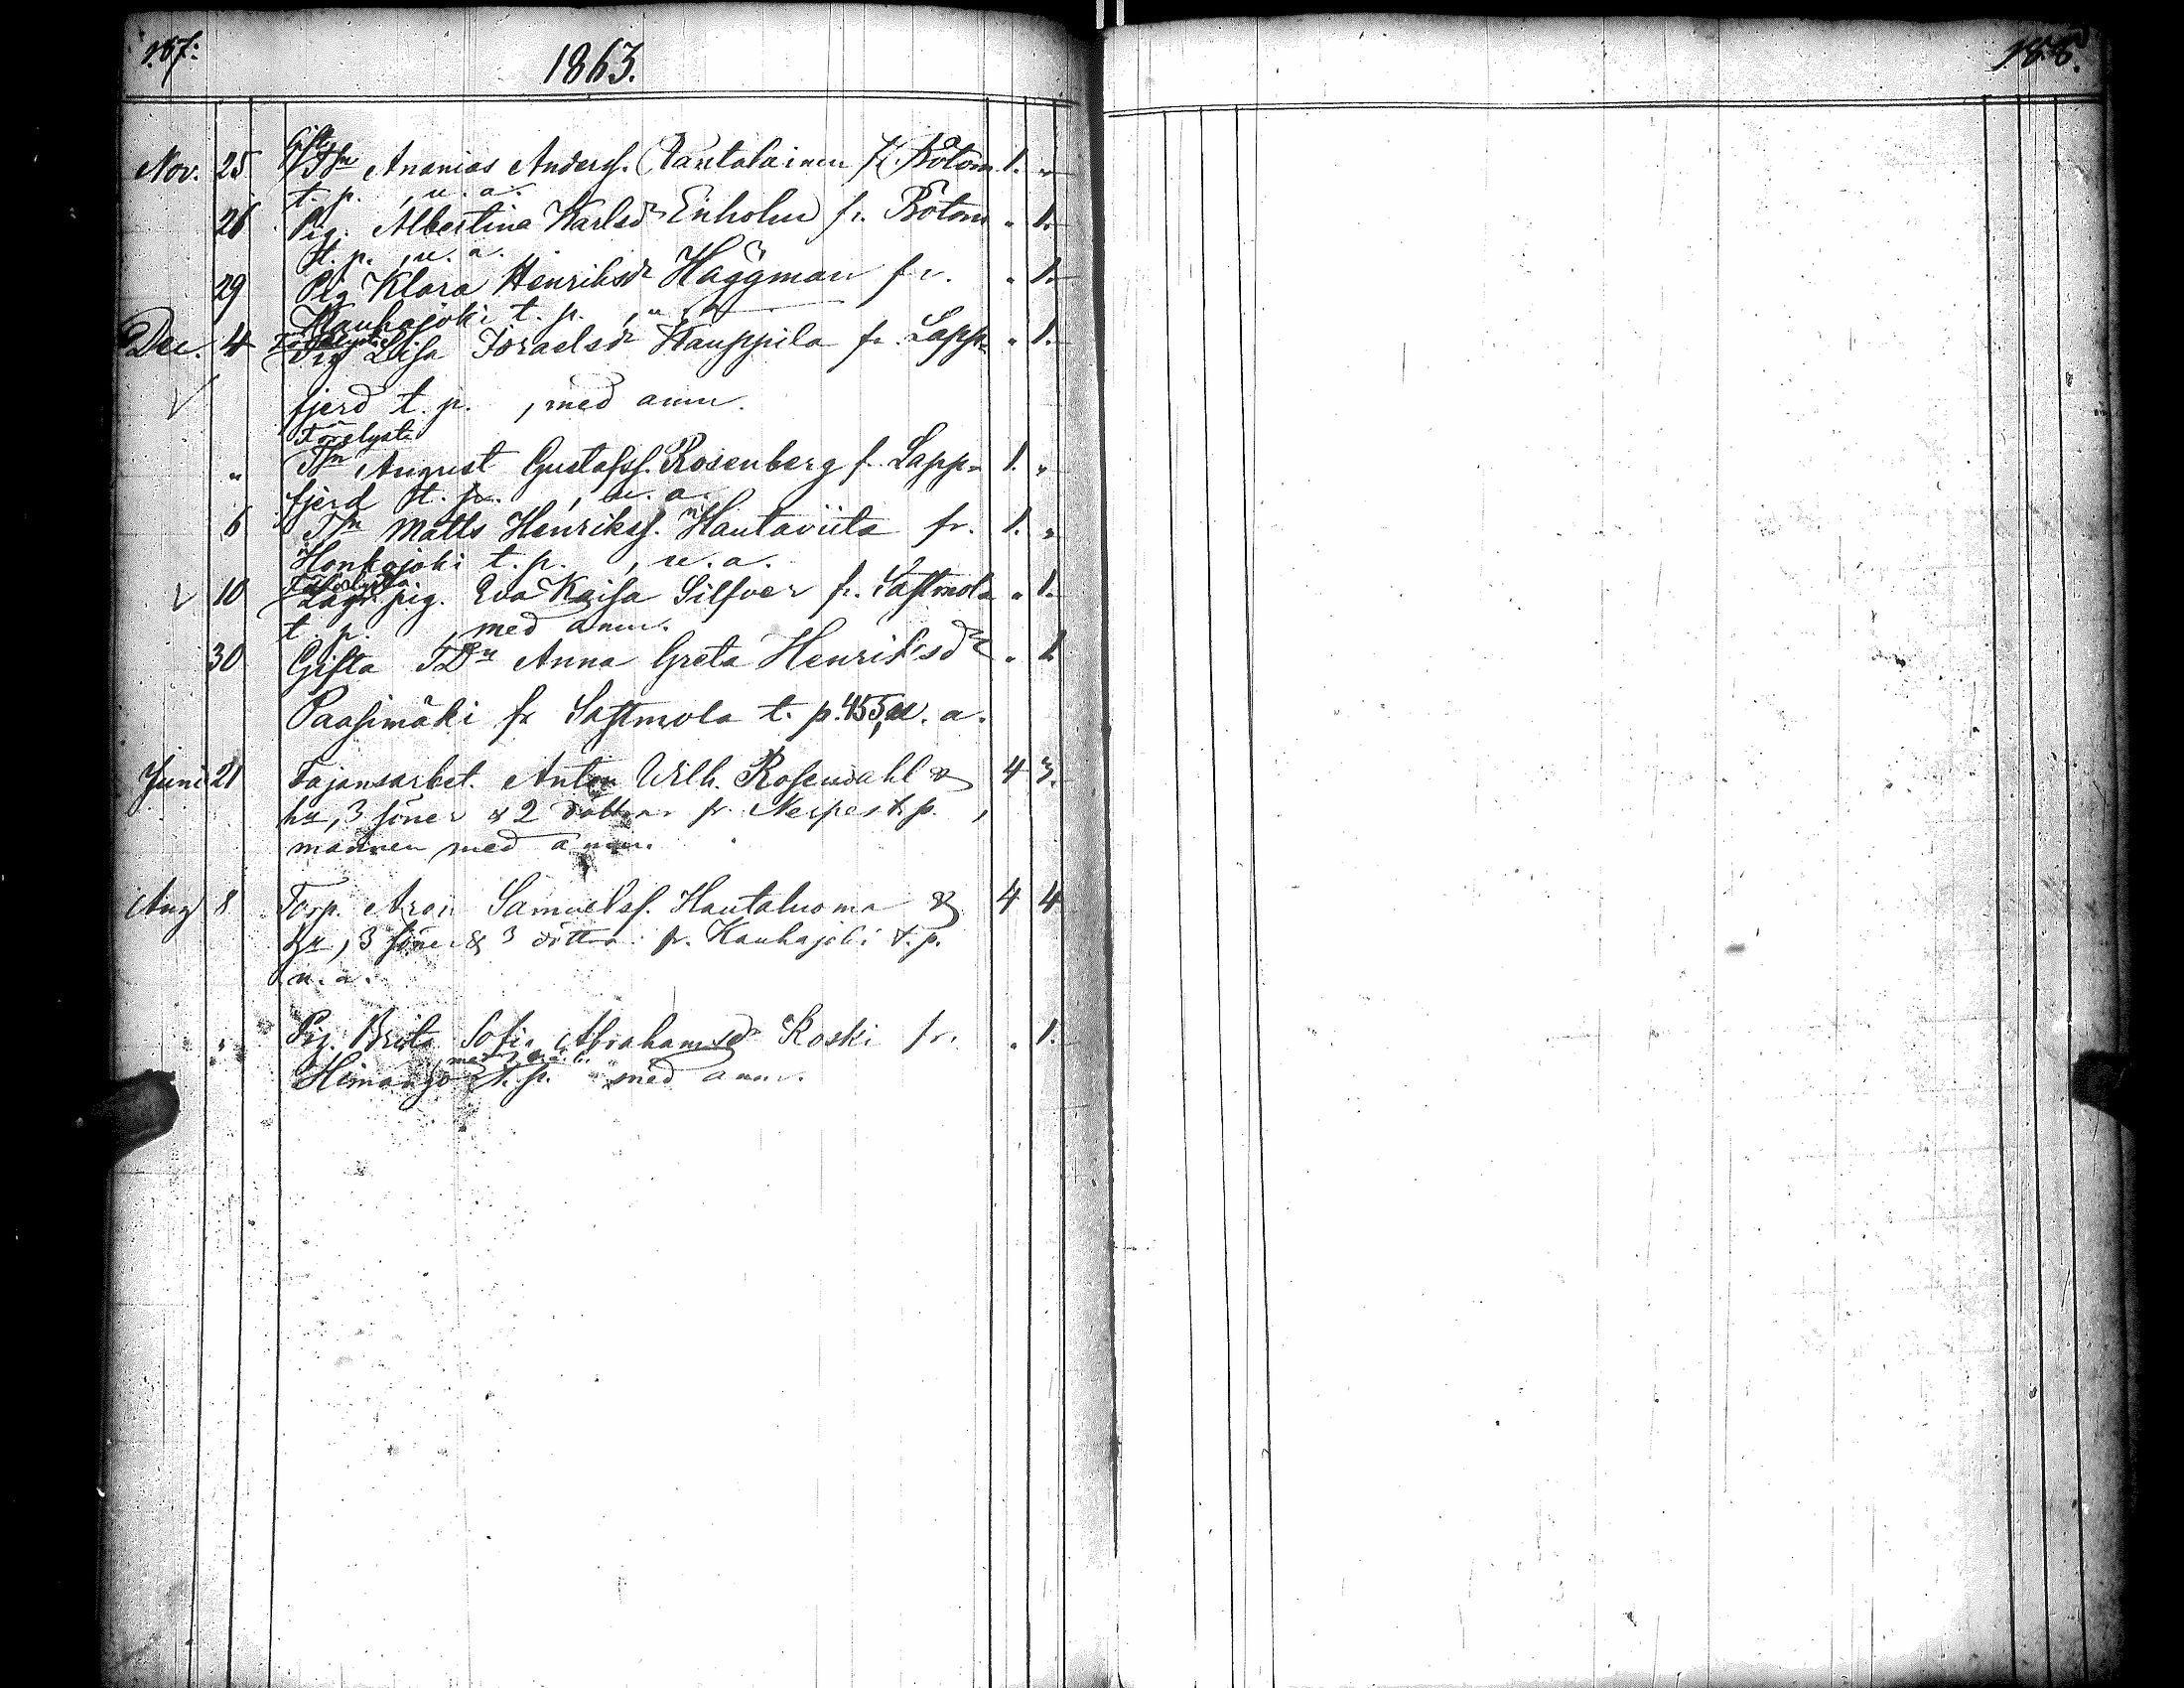 187.
188.
1863.
Gifte
Nov. 25 Tn Ananias Andersf. Rautalainen fr Bötom 1. "
t. p. , u. a.
26 Pig. Albertina Karlsdr Enholm fr. Bötom " 1.
t. p. , u. a.
29 Pig Klara Henriksdr Häggman fr. " 1.
Kauhajoki t. p. , u. a.
Förelysta
Dec. 4 Pig Lisa Israelsdr Kauppila fr. Lapp= " 1.
fjerd t. p. , med anm.
Förelyste
" Tn August Gustafsf. Rosenberg f. Lapp= 1. "
fjerd t. p. , u. a.
6 Tn Matts Henriksf. Hautaviita fr. 1. "
Honkajoki t. p. , u. a.
Förelysta
10 pig. Eva Kajsa Silfver fr. Sastmola " 1.
t. p. , med anm.
30 Gifta Anna Greta Henriksdr " 1
Paasimäki fr Sastmola t. p. 455, u. a.
Juni 21 Fajansarbet. Anton Wilh. Rosendahl & 4 3.
hu, 3 söner & 2 döttrar fr. Nerpes t. p. ,
mannen med anm.
Aug 8 Torp. Aron Samuelsf. Hautaluoma & 4 4
hu, 3 söner & 3 döttrar fr. Kauhajoki t. p.
u. a.
" Pig. Brita Sofia Abrahamsdr Koski fr. " 1.
Himango t. p. med anm.